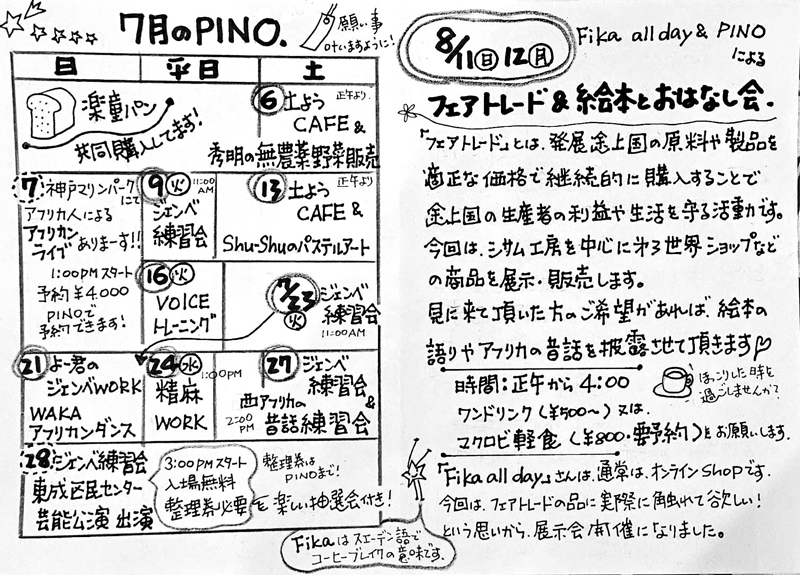 7月のPINO.
願い事
叶いますように!
日
平日
土
楽童パン
共同購入してます!
6 土よう 正午より
CAFE &
秀明の無農薬野菜販売
7 神戸マリンパーク
にて
アフリカ人による
アフリカン
ライブ ありまーす!!
1:00PMスタート
予約¥4.000
PINOで
予約できます!
9 火 11:00
AM
ジェンベ
練習会
13 土よう 正午より
CAFE &
Shu-Shuのパステルアート
16 火
VOICE
トレーニング
7/23
火
ジェンベ
練習会
11:00AM
21 よー君の
ジェンベWORK
WAKA
アフリカンダンス
24 水
1:00PM
精麻
WORK
27 ジェンベ
練習会&
西アフリカの
2:00
PM
昔話練習会
28 ジェンベ練習会
東成区民センター
芸能公演 出演
3:00PMスタート
入場無料
整理券必要
整理券は
PINOまで!
を 楽しい抽選会付き!
8/11日 12月
Fika all day & PINO
による
フェアトレード&絵本とおはなし会.
「フェアトレード」とは、発展途上国の原料や製品を
適正な価格で継続的に購入することで
途上国の生産者の利益や生活を守る活動です。
今回は、シサム工房を中心に第3世界ショップなど
の商品を展示・販売します。
見に来て頂いた方のご希望があれば、絵本の
語りやアフリカの昔話を披露させて頂きます♡
時間:正午から4:00
ワンドリンク(¥500〜)又は、
マクロビ軽食(¥800・要予約)をお願いします.
ほっこりした時を
過ごしませんか?
「Fika all day」さんは、通常は、オンラインshopです.
今回は、フェアトレードの品に実際に触れて欲しい!
という思いから、展示会開催になりました。
Fikaはスエーデン語で
コーヒーブレイクの意味です.